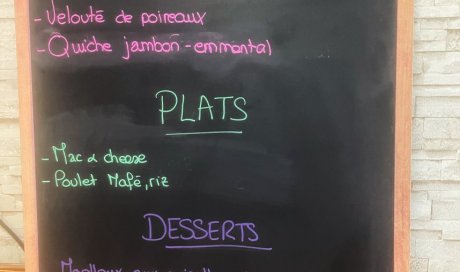 - Velouté de poireaux
- Quiche jambon - emmental
PLATS
- Mac & cheese
- Poulet Mafé, riz
DESSERTS